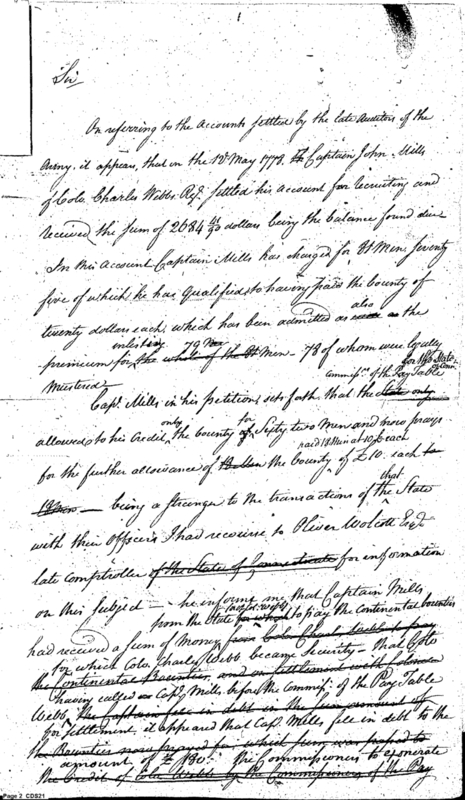 Sir
On referring to the accounts settled by the late auditors of the
Army, it appears, that on the 12th May 1778. Captain John Mills
of Colo. Charles Webbs Regt. settled his account for recruiting and
received the sum of 2684 dollars being the balance found due
In this account Captain Mills has charged for Men seventy
five of which he has qualified to having paid the bounty of
twenty dollars each, which has been admitted as also the
enlisting 79 Men
premium for the whole of the Men - 78 of whom were legally
for the State of Conn
Mustered
commissrs. of the Pay Table
Capt. Mills in his petition sets forth that the State only
only for
allowed to his credit the bounty of Sixty two Men and now prays
paid 18 Men at 10£ each
for the further allowance of the bounty of £10. each to
that
18 Men. — being a stranger to the transactions of the State
with their Officers I had recourse to Oliver Wolcott Esqr.
late comptroller of the State of Connecticut for information
on this subject — he informs me that Captain Mills
from the State for which to pay the continental bounties
had received a sum of money
for which Colo. Charles Webb became security - that Colo
the Continental Bounties, and on settlement with
having called on Capt. Mills before the Commisrs. of the Pay Table
Webb, the Captain fell in debt in the sum amount of
for settlement, it appeared that Capt. Mills, fell in debt to the
the Bounties now prayed for which sum was
amount of £180. - the Commissioners to exonerate
the Credit of Colo Webb by the Commissioners of the Pay
Page 2 CDS21